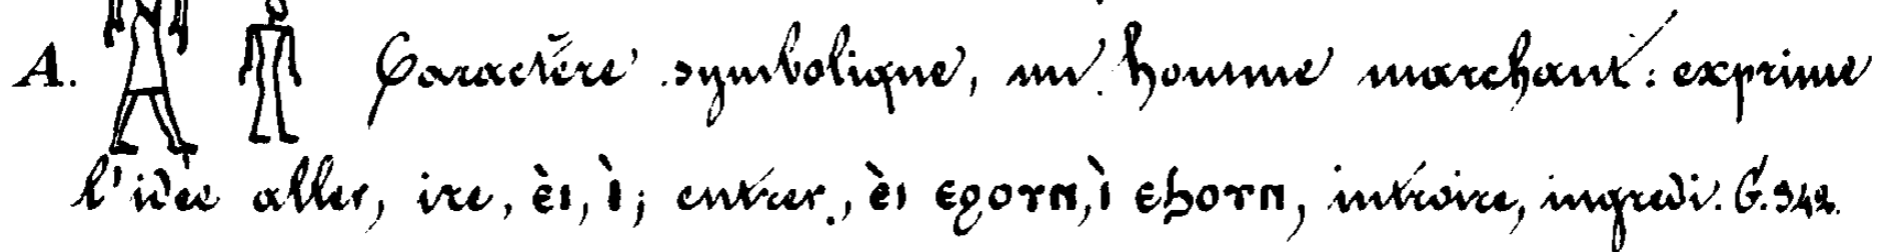 A. Caractère symbolique, un homme marchant: exprime
l'idée aller, ire, ⲉ̀ⲓ, ⲓ̀; entrer, ⲉ̀ⲓ ⲉϩⲟⲩⲛ, ⲓ̀ ⲉϧⲟⲩⲛ, introire, ingredi. G. 342.